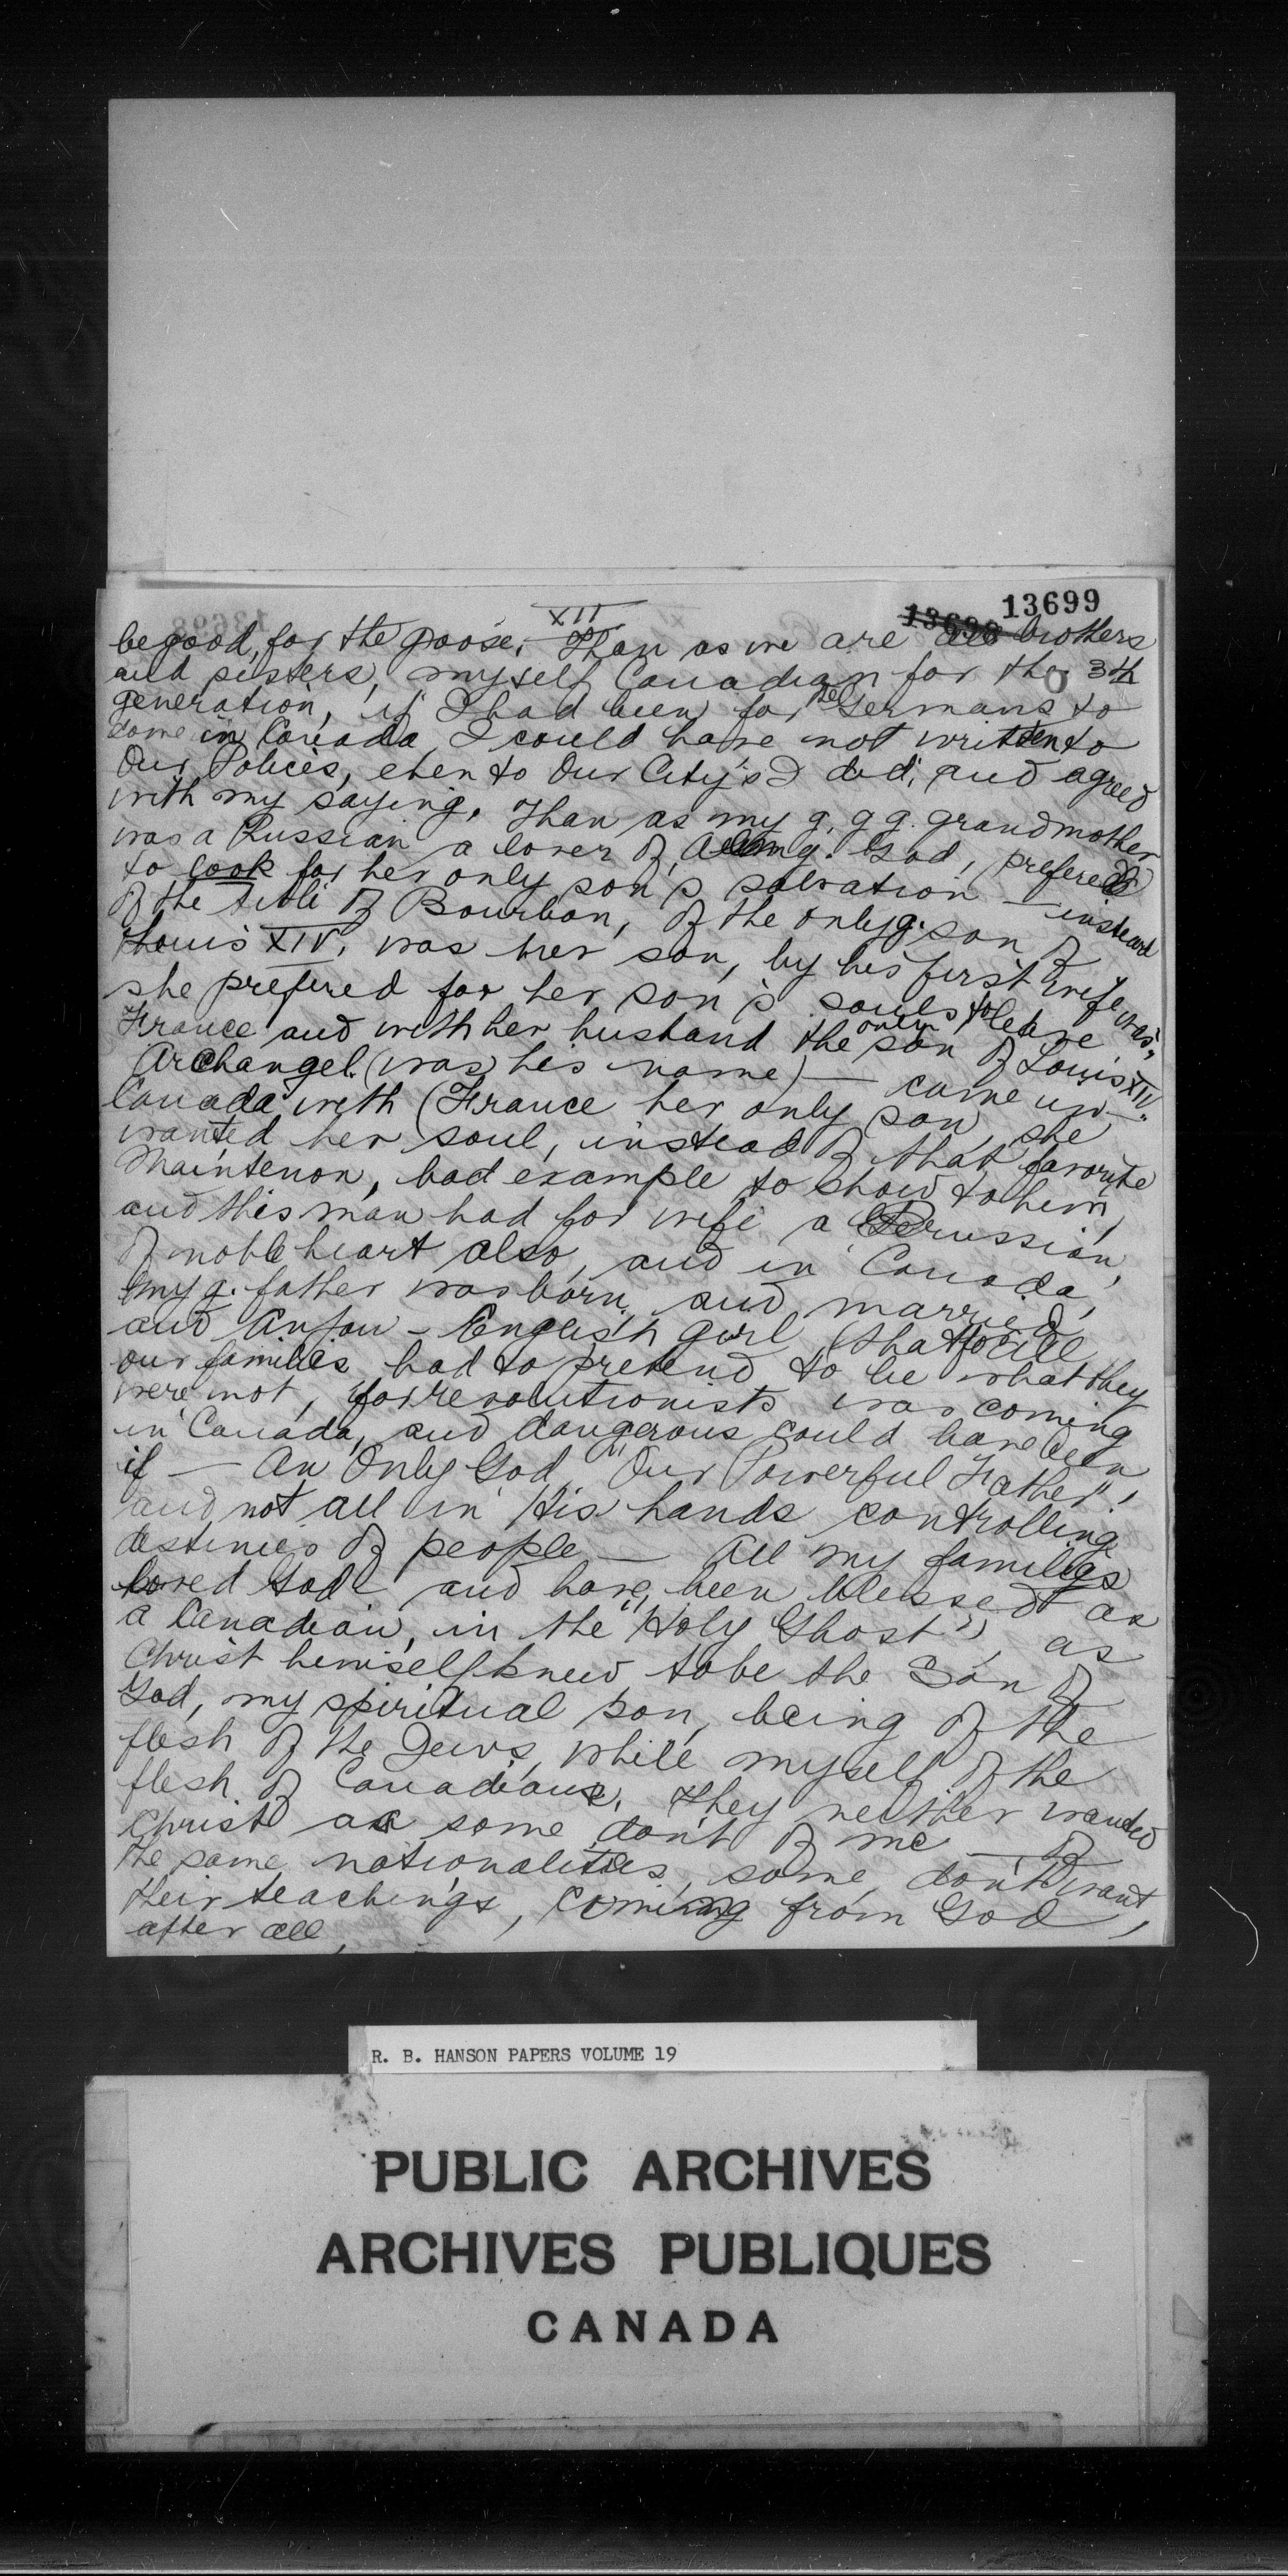 XII
13698 13699
be good, for the goose. Than as we are all brothers
and sisters, myself Canadian for the 3th
generation, if I had been for the Germans to
come in Canada, I could have not written to
Our Polices, even to Our City's I did, and agreed
with my saying. Than as my g. g g. grandmother
was a Russian a lover of Almg. God, prefered
to look for her only son's salvation — instead
of the title of Bourbon, of the only g. son of
Louis XIV, was her son, by his first wife was,
she prefered for her son's souls to leave
France and with her husband the only son of Louis XIV.
Archangel (was his name) — came in
Canada with (France her only son, she
wanted her soul, instead of that favorite
Maintenon, bad example to show to him,
and this man had for wife a Prussian,
of noble heart also, and in Canada,
my g. father was born, and married
and Anjou - English girl, that for all
our families had to pretend to be what they
were not, for revolutionists was coming
in Canada, and dangerous could have been
if — An Only God, "Our Powerful Father"!
and not all in His hands controlling
destinies of people — All my families
loved God and have been blessed as
a Canadian, in the "Holy Ghost", as
Christ himself knew to be the Son of
God, my spiritual son, being of the
flesh of the Jews, while myself of the
flesh of Canadians. They neither wanted
Christ as some don't of me — of
the same nationalities, some don't want
their teachings, coming from God,
after all,
R. B. HANSON PAPERS VOLUME 19
PUBLIC ARCHIVES
ARCHIVES PUBLIQUES
CANADA